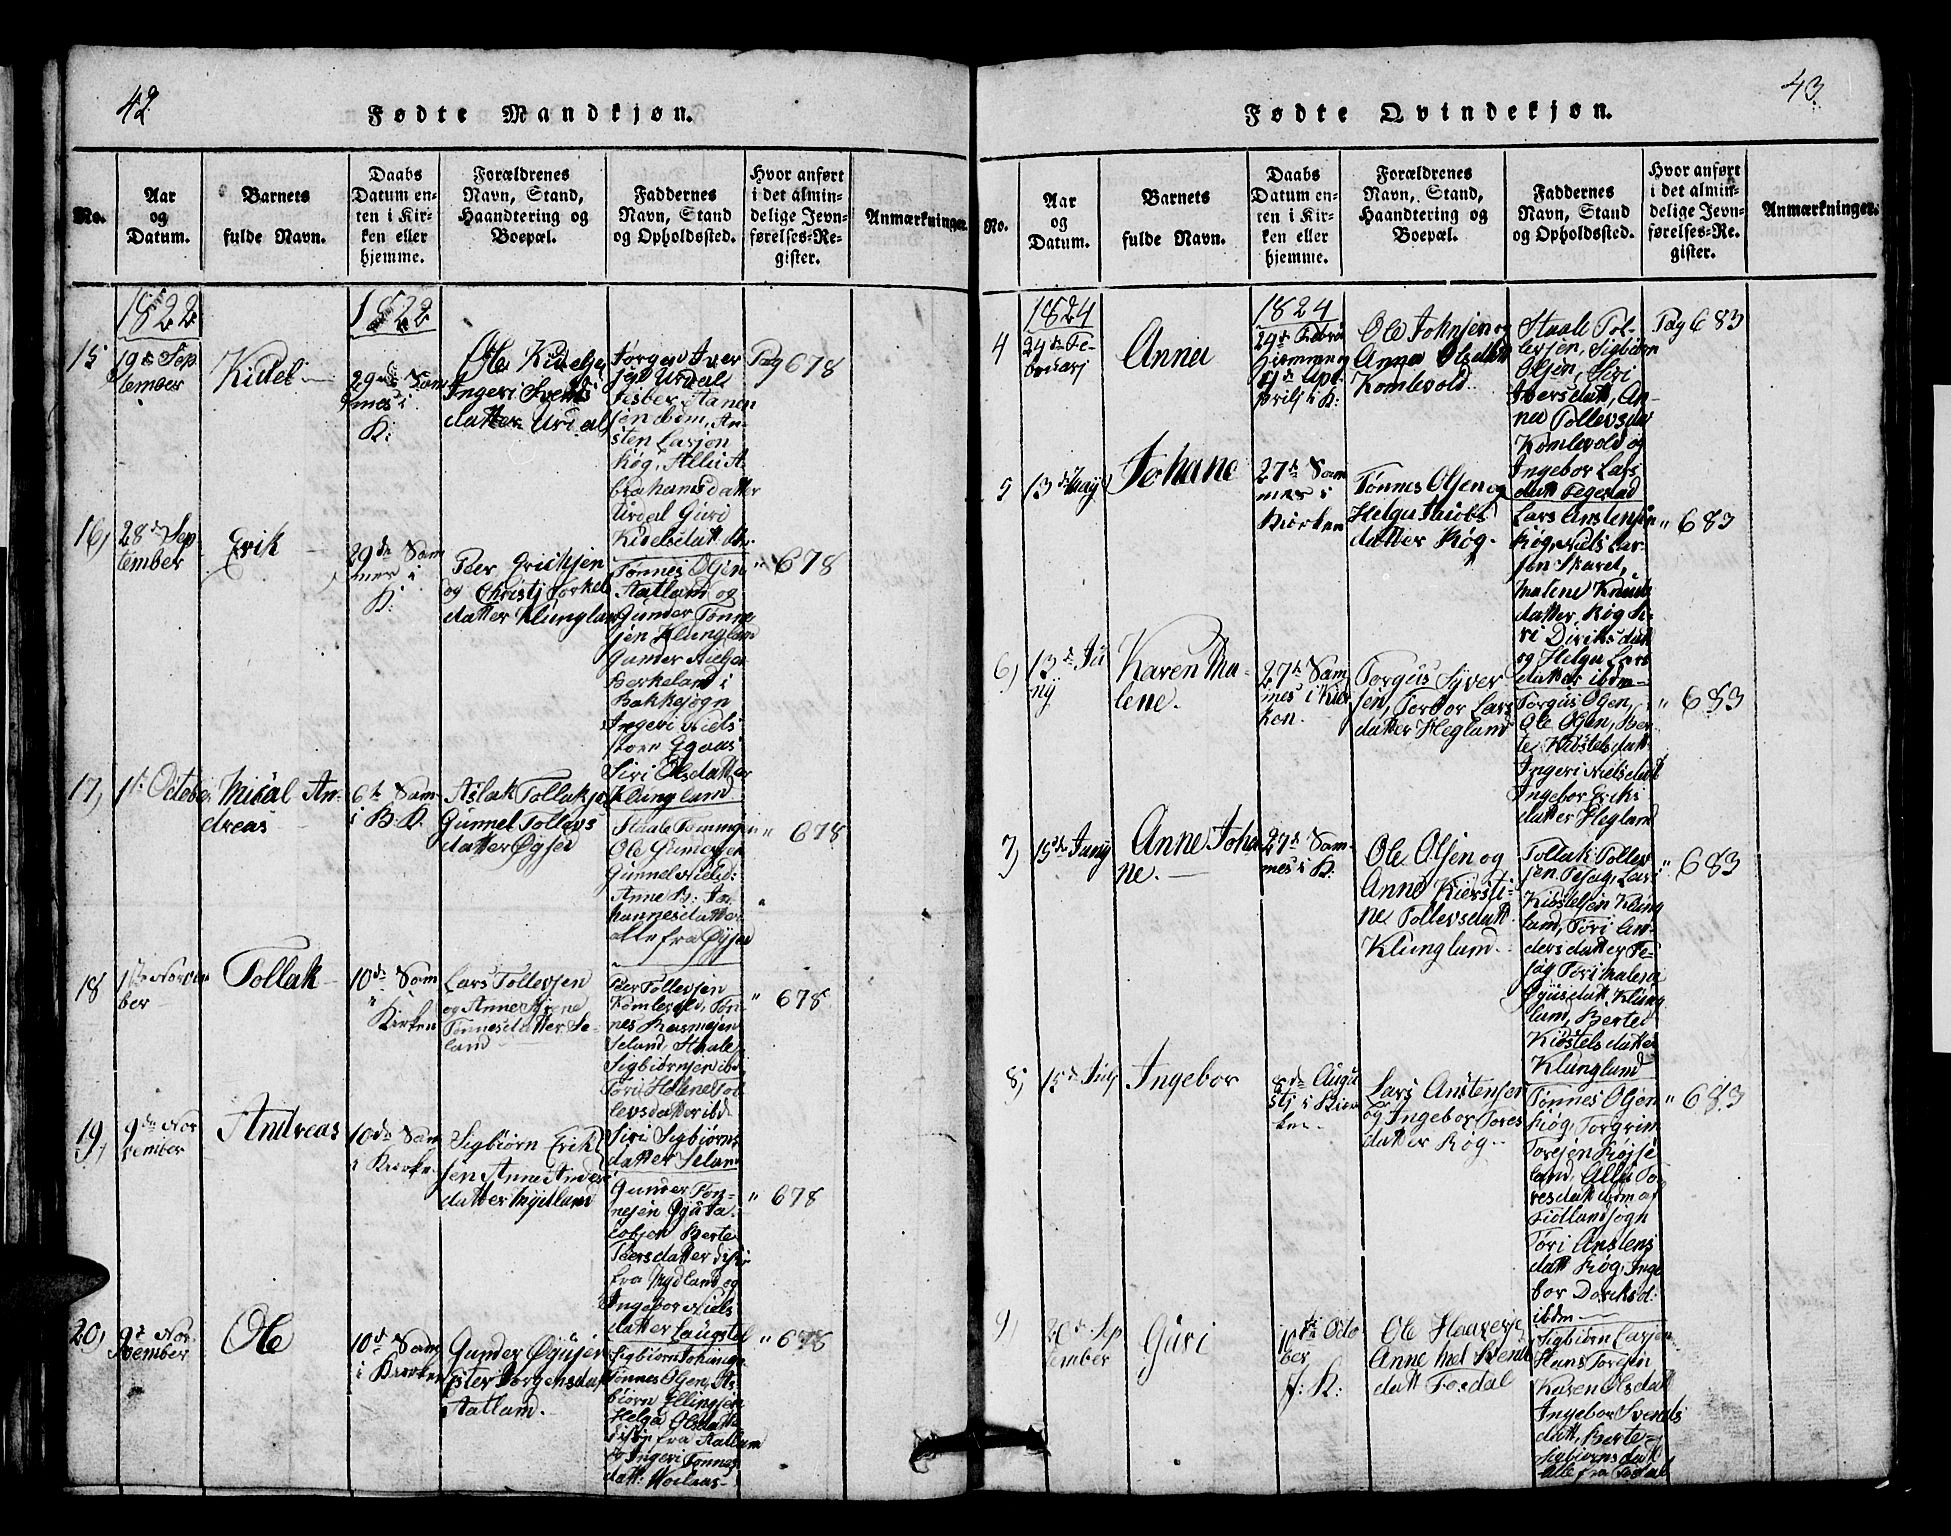 42
Fødte Mandkjøn.
No.
Aar
og
Datum.
Barnets
fulde Navn.
Daabs
Datum en-
ten i Kir-
ken eller
hjemme.
Forældrenes
Navn, Stand,
Haandtering og
Boepæl.
Faddernes
Navn, Stand
og Opholdssted.
Hvor anført
i det almin-
delige Jevn-
førelses-Re-
gister.
Anmærkninger.
1822
1822
15
19de Sep
tember
Kidel
29de Sam
mes i
K:
Ole Kidelsen
Ingeri Svends
datter Urdal
Jørgen Iver
sen Urdal
Jesber Aanen
sen ibdm, An-
sten Larsen
Røg, Allis A-
brahamsdatter
Urdal Guri
Kidelsdatt ibdm
Pag 678
16,
28de Sep
tember
Erik
29de Sam
mes i
K:
Peer Erichsen
og Christj Torkels
datter Klungland
Tønnes Olsen
Aatland og
Gunder Tønne
sen Klungland
Gunder Nielsen
Berkeland i
Bakkesogn
Ingeri Niels
Egaas
Siri Olsdatter
Klungland
" 678
17,
1ste Octobe
Mikal An-
dreas
6te Sam
i B.K.
Aslak Tollaksen
Gunnel Tollevs
datter Øysed
Staale Tommesen
Ole Gumosen
Gunnel Nielsd:
Anne B: Jo-
hannesdatter
alle fra Øysed
" 678
18
1ste Novem
ber
Tollak
10de Sam
"
Kirken
Lars Tollevsen
og Anne Sirene
Tønnesdatter Se-
land
Peer Tollevsen
Komlevold, Tøn-
nes Rasmusen
Seland, Staale
Sigbiørnsen ibd
Tori Helene Tol
levsdatter ibd
Siri Sigbiørns
datter Seland
" 678
19,
9de No-
vember
Andreas
10de Sam
i Kirken
Sigbiørn Erik
sen Anne Anders
datter Mydland
Gunder Tøn-
nesen Øgu Ja-
cobsen Berte
Peersdatter disse
fra Mydland og
Ingebor Niels
datter Laugstøl
" 678
20,
9de No-
vember
Ole
10de Sam
i Kirken
Gunder Øyusen
Ester Jørgensdat
Aatland.
Sigbiørn Johansen
Tønnes Olsen, As
biørn Ellingsen
Helga Olsdatter
disse fra Aatland
og Ingeri Tønnes
datt: Moelaas
" 678
43
Fødte Qvindekjøn.
No.
Aar
og
Datum.
Barnets
fulde Navn.
Daabs
Datum en-
ten i Kir-
ken eller
hjemme.
Forældrenes
Navn, Stand,
Haandtering og
Boepæl.
Faddernes
Navn, Stand
og Opholdssted.
Hvor anført
i det almin-
delige Jevn-
førelses-Re-
gister.
Anmærkninger.
1824
1824
4
24de Fe-
bruarj
Anna
29de Febru
hiemme og
4de Apr
prilj i K:
Ole Johnsen og
Anna Olsdatt
Komlevold
Staale Tol-
levsen, Sigbiørn
Olsen, Siri
Iversdatt, An-
na Tollevsdat
Komlevold og
Ingebor Lars
datt Fegestad
Pag 683
5
13de Maij
Johane
27de Sam
mes i
Kirken
Tønnes Olsen og
Helga Jacobs
datter Røg.
Lars Anstensøn
Røg, Niels Lar-
sen Skaret,
Malene Knuds
datter Røg Si-
ri Diriksdatt
og Helga Lars
datter ibdm
" 683
6,
13de Ju
nij
Karen Ma-
lene.
27de Sam
mes i Kir
ken.
Torgus Syver
sen, Torbor Lars
datter Hegland
Torgus Olsen,
Ole Olsen, Ber-
te Kidstelsdatt
Ingeri Nielsdatt
Ingebor Eriks
datter Hegland
" 683
7,
15de Junj
Anne Joha
ne.
27de Sam-
mes i K.
Ole Olsen og
Anne Kiersti-
ne Tollevsdatt
Klungland
Tollak Tollev
sen Fesag, Lars
Kidstelsen Klung
land, Tori An-
dersdatter Fe-
sag Tori Malena
Øyusdatt Klung
land, Berte
Kidstelsdatter
Klungland
" 683
8,
15de Julj
Ingebor
8de Augu
stj i Kir
ken
Lars Anstensen
og Ingebor Tores
datter Røg
Tønnes Olsen
Røg, Torgrim
Toresen Røjse
land, Allis To-
resdatt ibdm af
Fidlandsogn
Tori Anstens
datt Røg, Inge
bor Doriksd:
ibdm
" 683
9,
20de Sep
tember
Guri
10de Octo
ber
i K:
Ole Haaversen
Anne Mal Bent
datt Fosdal
Sigbiørn Larsen
Hans Toresen
Karen Olsdatt
Ingebor Svends
datt, Berte
Sigbiørnsdatt
alle fra Fosdal